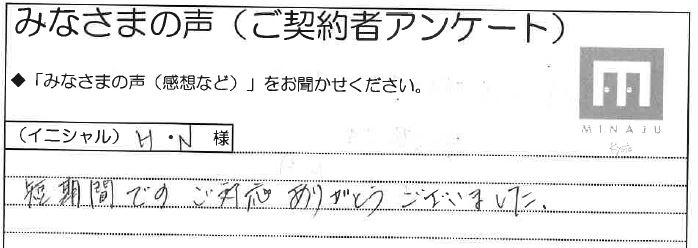 みなさまの声（ご契約者アンケート）
◆「みなさまの声（感想など）」をお聞かせください。
MINAJU
Kyoto
（イニシャル）H・N 様
短期間でのご対応ありがとうございました。